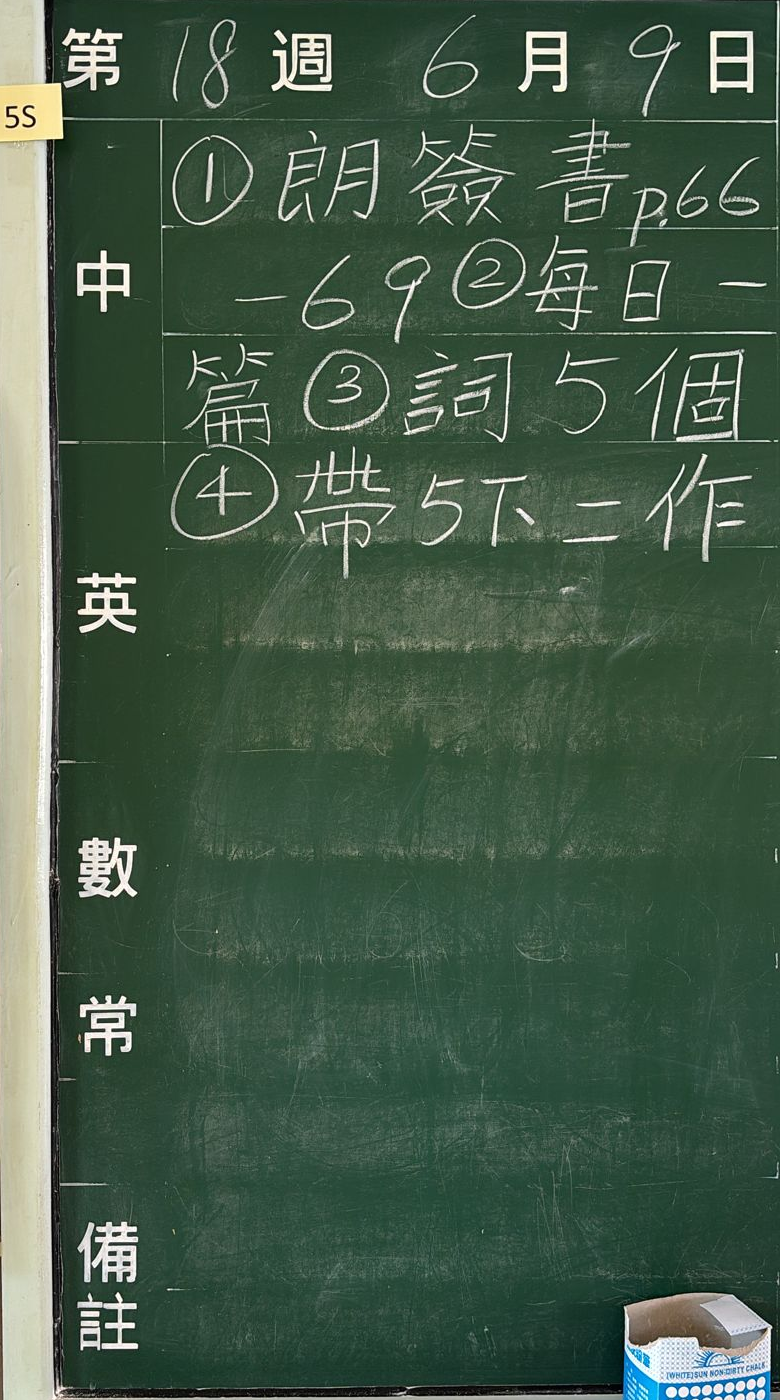 第 18 週 6 月 9 日
5S
中
①朗簽書p.66
-69②每日一
篇③詞5個
④帶5下二作
英
數
常
備
註
(WHITE)SUN NON-DIRTY CHALK